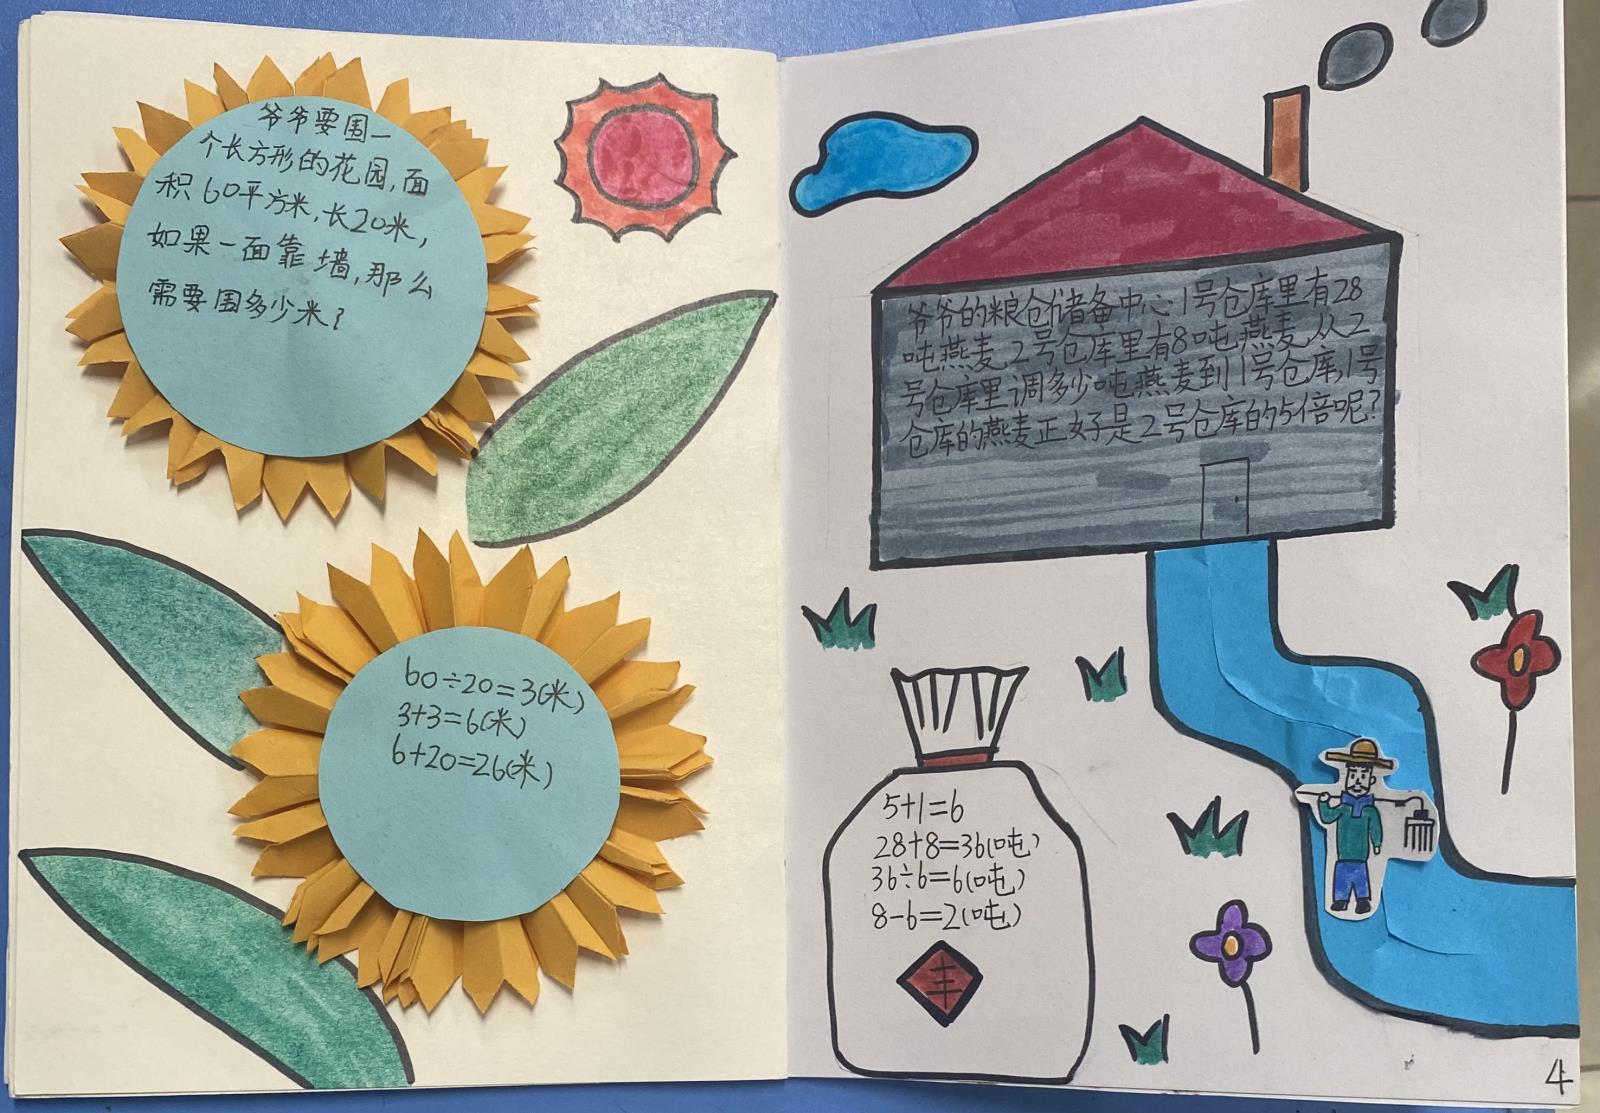 爷爷要围一
个长方形的花园,面
积60平方米,长20米,
如果一面靠墙,那么
需要围多少米?
60÷20=3(米)
3+3=6(米)
6+20=26(米)
爷爷的粮仓储备中心1号仓库里有28
吨燕麦,2号仓库里有8吨燕麦,从2
号仓库里调多少吨燕麦到1号仓库,1号
仓库的燕麦正好是2号仓库的5倍呢?
5+1=6
28+8=36(吨)
36÷6=6(吨)
8-6=2(吨)
丰
4